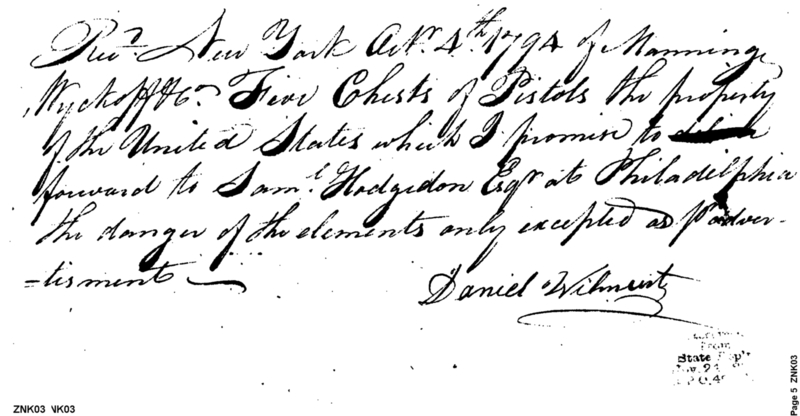 Rec.d New York Octr. 4th 1794 of Manning
Wyckoff & Co. Five Chests of Pistols the property
of the United States which I promise to
forward to Saml. Hodgedon Esqr at Philadelphia
the danger of the elements only excepted as P adver-
-tisment
Daniel Wilmurt
From
State Dep't
ZNK03 NK03
Page 5 ZNK03